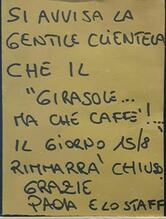 SI AVVISA LA
GENTILE CLIENTELA
CHE IL
"GIRASOLE...
MA CHE CAFFE'!"
IL GIORNO 15/8
RIMMARRA' CHIUSO
GRAZIE
PAOLA E LO STAFF